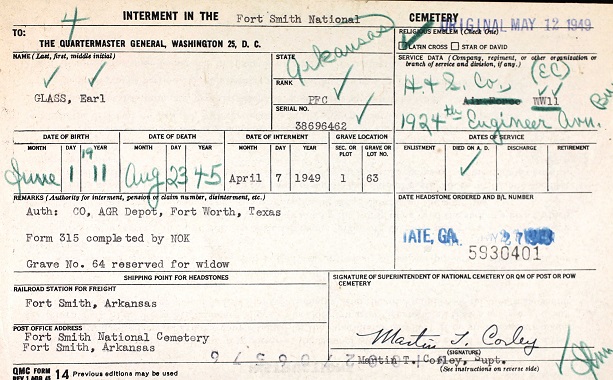 4
INTERMENT IN THE Fort Smith National CEMETERY
ORIGINAL MAY 12 1949
TO:
THE QUARTERMASTER GENERAL, WASHINGTON 25, D. C.
RELIGIOUS EMBLEM (Check One)
LATIN CROSS STAR OF DAVID
NAME (Last, first, middle initial)
GLASS, Earl
STATE
Arkansas
RANK
PFC
SERIAL NO.
38696462
SERVICE DATA (Company, regiment, or other organization or branch of service and division, if any.)
H & S. Co., (EC)
Air Force WW11
1924th Engineer Avn.
DATE OF BIRTH DATE OF DEATH DATE OF INTERMENT GRAVE LOCATION
MONTH DAY YEAR MONTH DAY YEAR MONTH DAY YEAR SEC. OR PLOT GRAVE OR LOT NO.
June 1 1911 Aug 23 45 April 7 1949 1 63
DATES OF SERVICE
ENLISTMENT DIED ON A. D. DISCHARGE RETIREMENT
REMARKS (Authority for interment, pension or claim number, disinterment, etc.)
Auth: CO, AGR Depot, Fort Worth, Texas
Form 315 completed by NOK
Grave No. 64 reserved for widow
DATE HEADSTONE ORDERED AND B/L NUMBER
TATE, GA.
5930401
SHIPPING POINT FOR HEADSTONES
RAILROAD STATION FOR FREIGHT
Fort Smith, Arkansas
POST OFFICE ADDRESS
Fort Smith National Cemetery
Fort Smith, Arkansas
SIGNATURE OF SUPERINTENDENT OF NATIONAL CEMETERY OR QM OF POST OR POW CEMETERY
Martin T. Corley
(SIGNATURE)
Martin T. Corley, Supt.
(See instructions on reverse side)
QMC FORM 14 Previous editions may be used
REV 1 APR 45